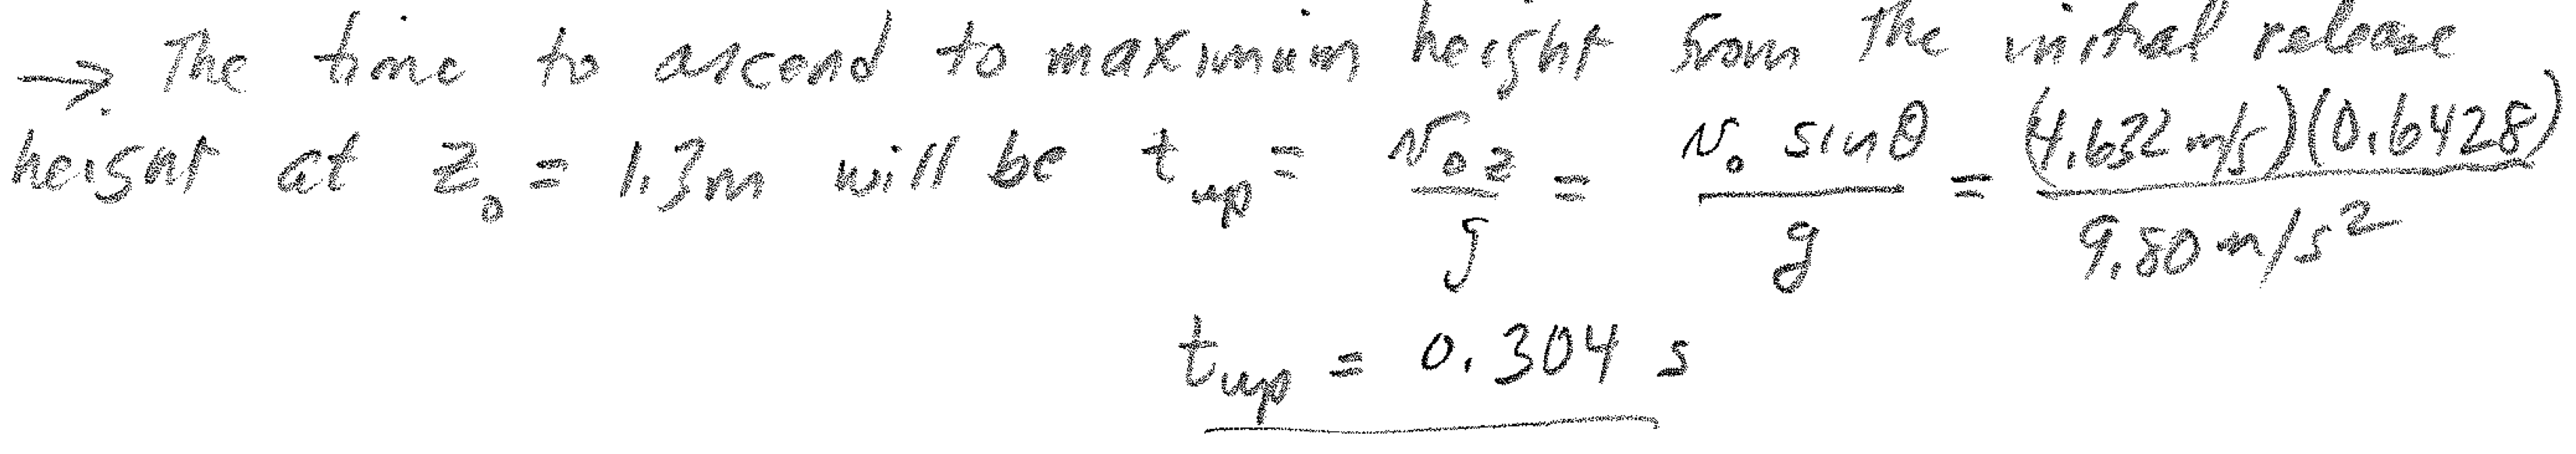 → The time to ascend to maximum height from the initial release
height at z₀ = 1.3m will be t_up = v₀z / g = v₀ sinθ / g = (4.632 m/s)(0.6428) / 9.80 m/s²
t_up = 0.304 s